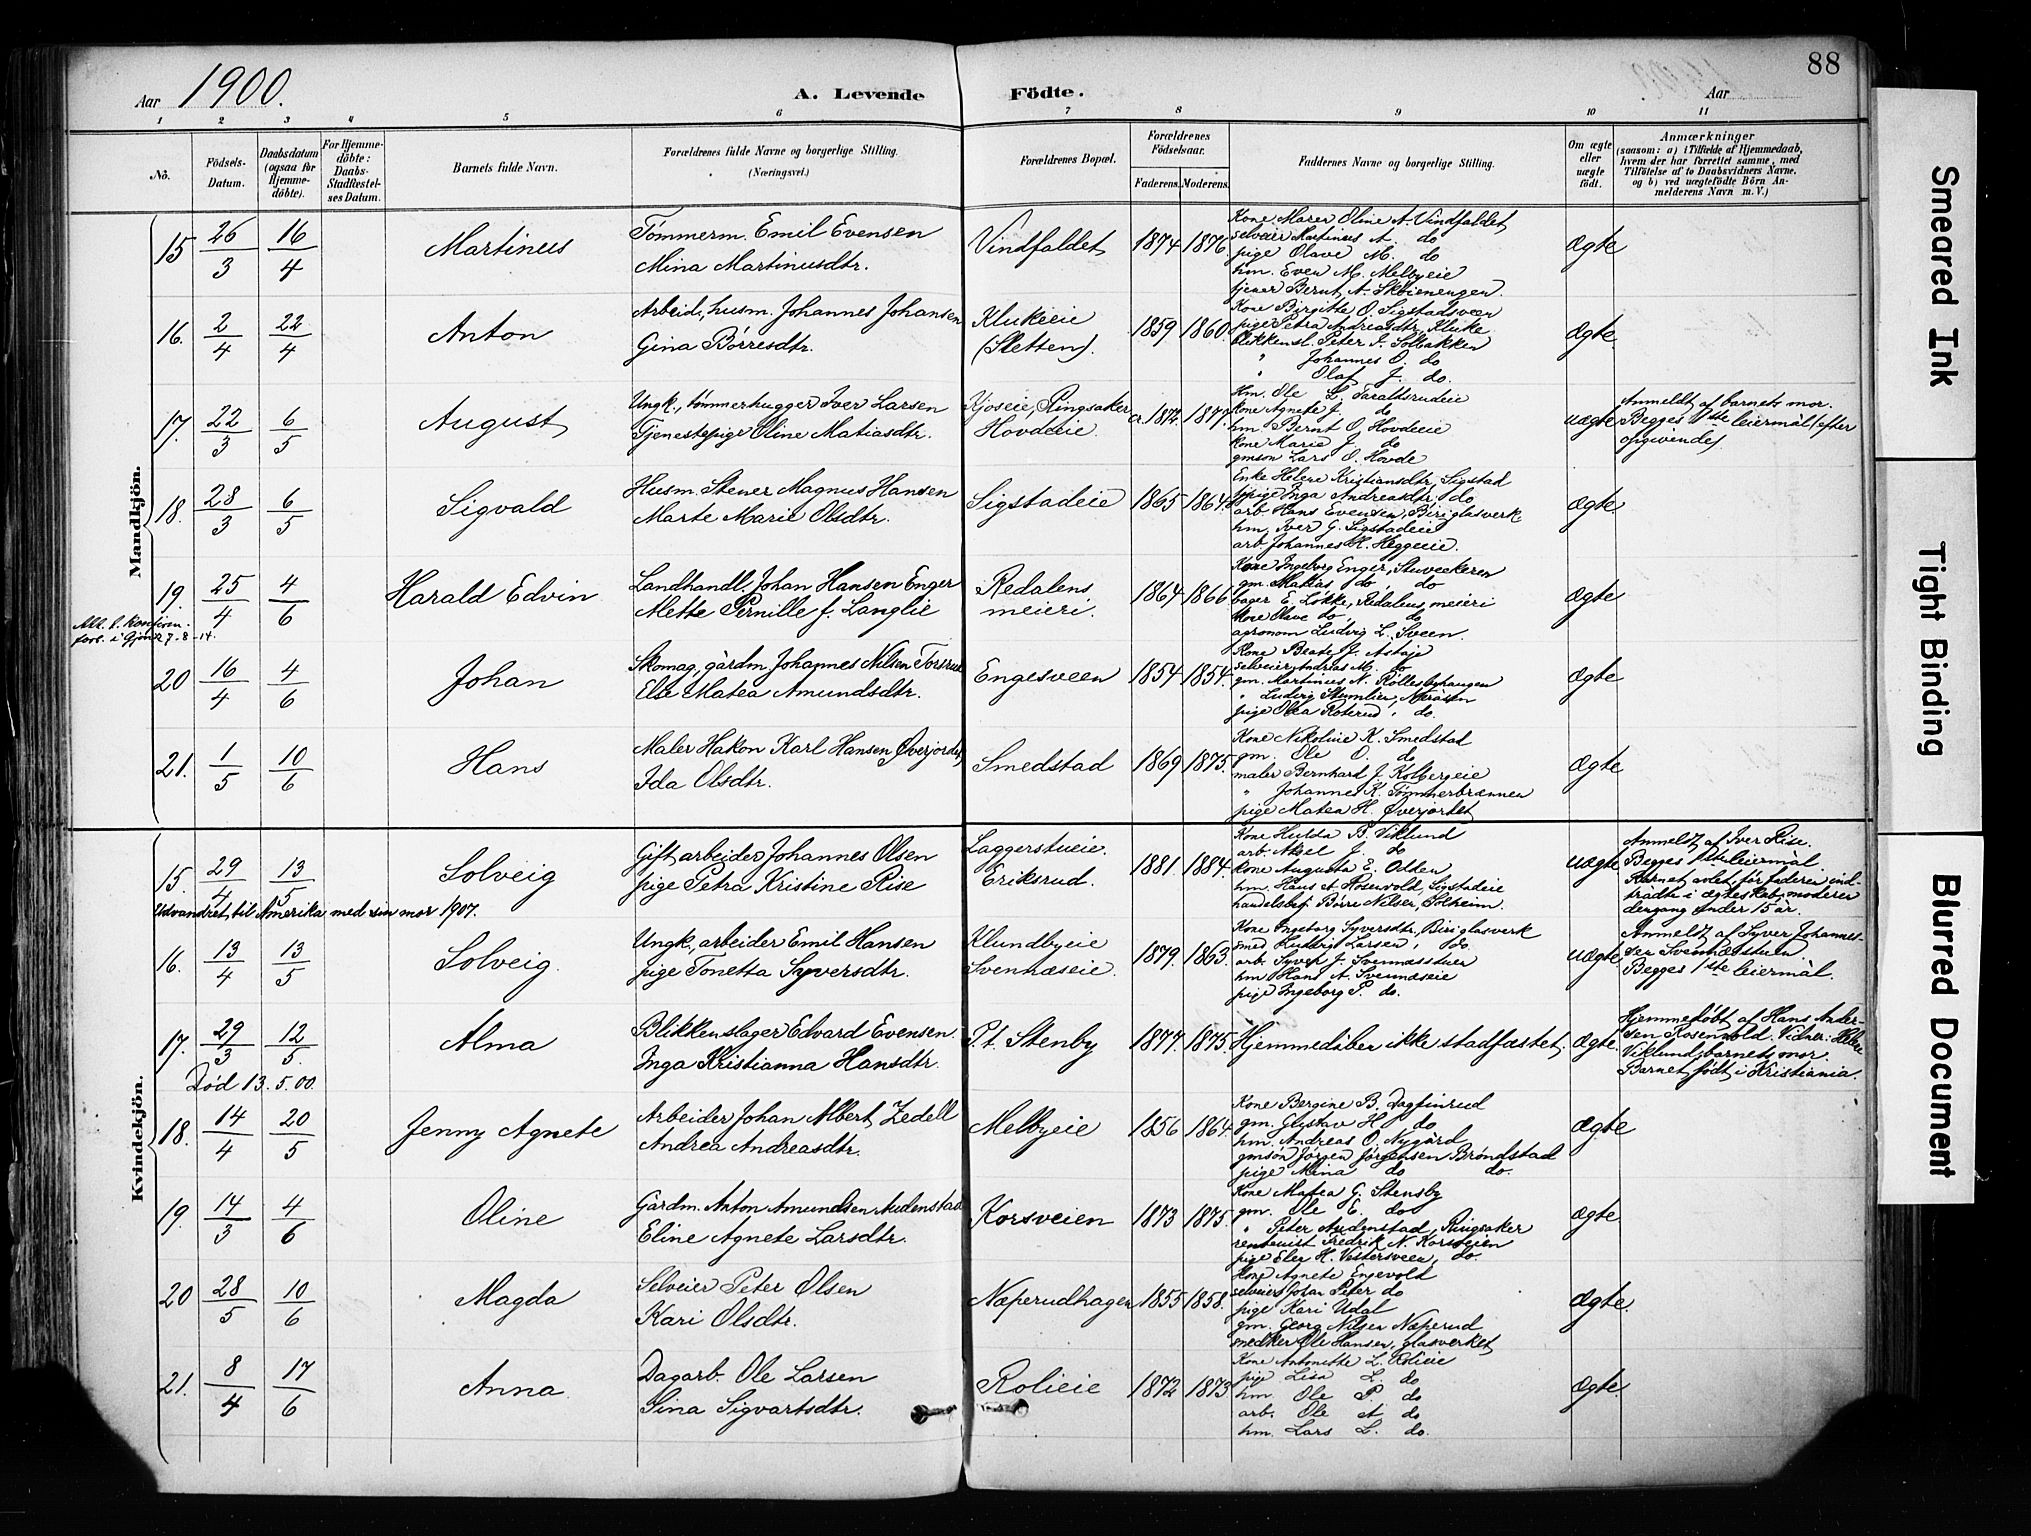 88
Aar 1900.
A. Levende Födte.
Aar
1 2 3 4 5 6 7 8 9 10 11
No.
Födsels-Datum.
Daabsdatum (ogsaa for Hjemme-döbte).
For Hjemme-döbte: Daabs-Stadfæstel-ses Datum.
Barnets fulde Navn.
Forældrenes fulde Navne og borgerlige Stilling. (Næringsvei.)
Forældrenes Bopæl.
Forældrenes Födselsaar.
Faderens. Moderens.
Faddernes Navne og borgerlige Stilling.
Om ægte eller uægte födt.
Anmærkninger
(saasom: a) i Tilfælde af Hjemmedaab, hvem der har forrettet samme, med Tilföielse af to Daabsvidners Navne, og b) ved uægtefödte Börn An-melderens Navn m. V.)
Mandkjön.
15 26/3 16/4 Martinus
Tømmerm. Emil Evensen
Mina Martinusdtr.
Vindfaldet 1874 1876.
Kone Maren Oline A. Vindfaldet
selveier Martinus A. do
pige Olave M. do
hm. Even M. Melbyeie
tjener Bernt A. Skoienengen.
Ægte
16. 2/4 22/4 Anton
Arbeid., husm. Johannes Johansen
Gina Börresdtr.
Klukeeie
(Sletten).
1859 1860.
Kone Birgitte O. Sigstadsveen
pige Petra Andreasdtr. Kluke
Blikkensl. Peter J. Solbakken
" Johannes O. do
" Olaf J. do.
Ægte.
17. 22/3 6/5 August
Ungk., tømmerhugger Iver Larsen
Tjenestepige Oline Matiasdtr.
Kjoseie, Ringsaker
Hovdeeie.
ca 1872. 1877.
Hm. Ole L. Taraldsrudeie
kone Agnete J. do
hm. Bernt O. Hovdeeie
kone Marie J. do
gmsøn Lars O. Hovde
uægte
Anmeldt af barnets mor.
Begges 1ste leiermål (efter
opgivende).
18. 28/3 6/5 Sigvald
Husm. Stener Magnus Hansen
Marte Marie Olsdtr.
Sigstadeie 1865 1864.
Enke Helene Kristiansdtr. Sigstad
pige Inga Andreasdtr. do
arb. Hans Evensen, Biriglasverk
hm. Iver G. Sigstadeie
arb. Johannes H. Heggeeie.
Ægte.
19. 25/4 4/6 Harald Edvin
Att. t. konfirm.
forl. i Gjøvik 7-8-14.
Landhandl. Johan Hansen Enger
Mette Pernille f. Langlie
Redalens
meieri.
1864 1866
Kone Ingeborg Enger, Stuveekeren
gm. Matias do do
bager E. Løkke, Redalens meieri
kone Olave do, do.
agronom Ludvig L. Sveen.
Ægte
20 16/4 4/6 Johan
Skomag., gårdm. Johannes Nilsen Torsrud
Else Matea Amundsdtr.
Engesveen 1854 1854.
Kone Beate J. Astøje
selveier Andreas M. do
gm. Martinus N. Röllesbyhaugen
" Ludvig Stumlien,
pige Olea Roterud, do.
Ægte
21. 1/5 10/6 Hans
Maler Hakon Karl Hansen Øverjordet
Ida Olsdtr.
Smedstad 1869 1875.
Kone Nikoline K. Smedstad
gm. Ole O. do
maler Bernhard J. Kolbergeie
" Johannes K. Tømmerbrænnen
pige Matea H. Øverjordet
Ægte
Kvindekjön.
15. 29/4 13/5 Solveig
Udvandret til Amerika med sin mor 1907.
Gift arbeider Johannes Olsen
pige Petra Kristine Rise
Laggerstueie.
Eriksrud.
1881. 1884.
Kone Hulda B. Viklund
arb. Aksel J. do
kone Augusta E. Odden
hm. Hans A. Rosenvold, Sigstadeie
handelsbetj. Börre Nilsen, Solheim.
uægte
Anmeldt af Iver Rise.
Begges 1ste leiermål.
Barnet avlet, før faderen ind-
trådte i ægteskab, moderen
dengang under 15 år.
16. 13/4 13/5 Solveig.
Ungk., arbeider Emil Hansen
pige Tonetta Syversdtr.
Klundbyeie
Svennæseie.
1879. 1863.
Kone Ingeborg Syversdtr., Biriglasverk
smed Ludvig Larsen, do.
arb. Syver J. Svennæsstuen
hm Hans A. Svennæseie
pige Ingeborg P. do.
uægte
Anmeldt af Syver Johannes-
sen Svennæsstuen.
Begges 1ste leiermål.
17. 29/3 12/5. Alma
Død 13.5.00.
Blikkenslager Edvard Evensen.
Inga Kristianna Hansdtr.
P.t. Stenby 1877. 1875.
Hjemmedåben ikke stadfæstet.
Ægte.
Hjemmedøbt af Hans Ander-
sen Rosenvold. Vidner: Helene
Viklund, barnets mor.
Barnet født i Kristiania.
18. 14/4 20/5 Jenny Agnete
Arbeider Johan Albert Zedell
Andrea Andreasdtr.
Melbyeie 1856 1864.
Kone Bergine B. Dagfinrud
gm. Gustav H. do
hm. Andreas O. Nygård
gmsøn Jørgen Jørgensen Brøndstad
pige Mina do do.
Ægte
19. 14/3 4/6 Oline
Gårdm. Anton Amundsen Audenstad
Eline Agnete Larsdtr.
Korsveien 1873 1875.
Kone Matea G. Stensby
gm. Ole E. do
" Peter Audenstad, Ringsaker
rentenist Fredrik N. Korsveien
pige Elen H. Vestersveen, do.
Ægte
20 28/5 10/6 Magda
Selveier Peter Olsen
Kari Olsdtr.
Næperudhagen 1855 1858.
Kone Agnete Engevolt
selveier Johan Peter do
pige Kari Udal
gm. Georg Nilsen Næperud
snedker Ole Hansen, glasverket
Ægte.
21. 8/4 17/6 Anna
Dagarb. Ole Larsen
Sina Sigvartsdtr.
Rolieie 1872 1873
Kone Antonette L. Rolieie
pige Lisa L. do
hm. Ole P. do
arb. Ole A. do
hm. Lars L. do.
Ægte
Smeared Ink
Tight Binding
Blurred Document